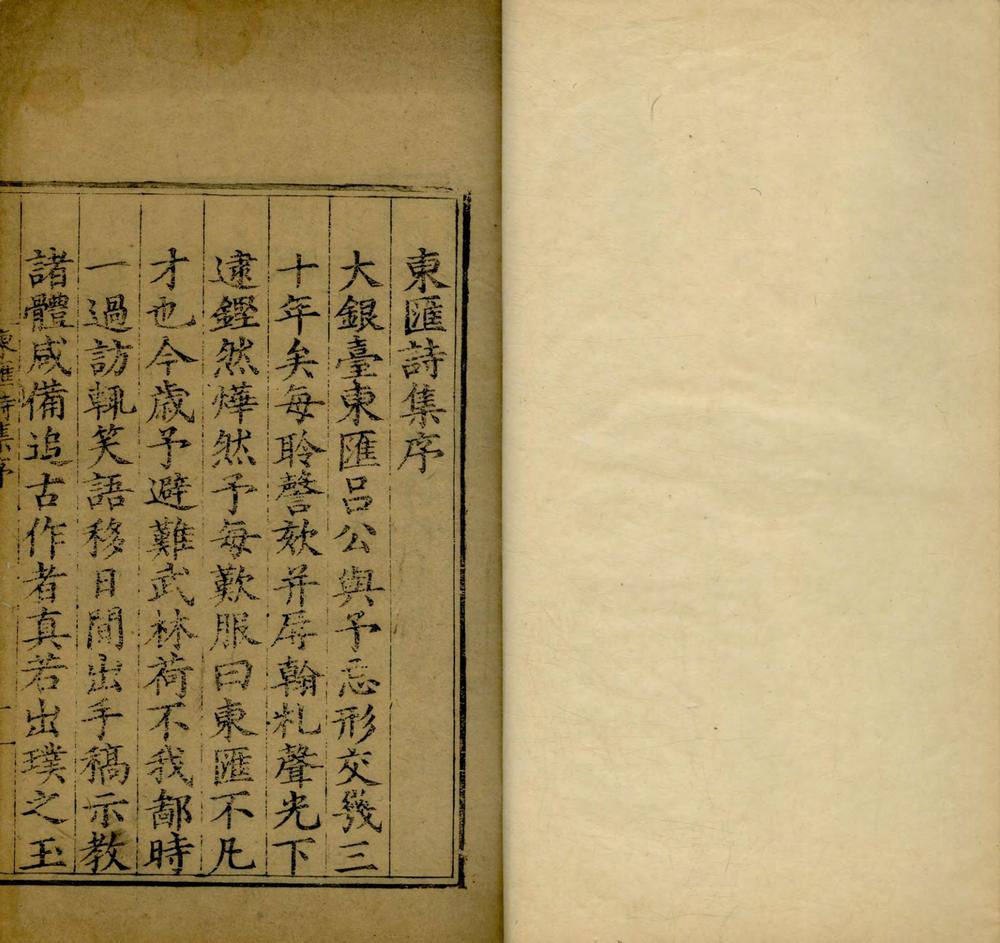 東匯詩集序
大銀臺東匯呂公與予忘形交幾三
十年矣每聆謦欬并辱翰札聲光下
逮鏗然燁然予每歎服曰東匯不凡
才也今歲予避難武林荷不我鄙時
一過訪輒笑語移日間出手稿示教
諸體咸備追古作者真若出璞之玉
東匯詩集序
一